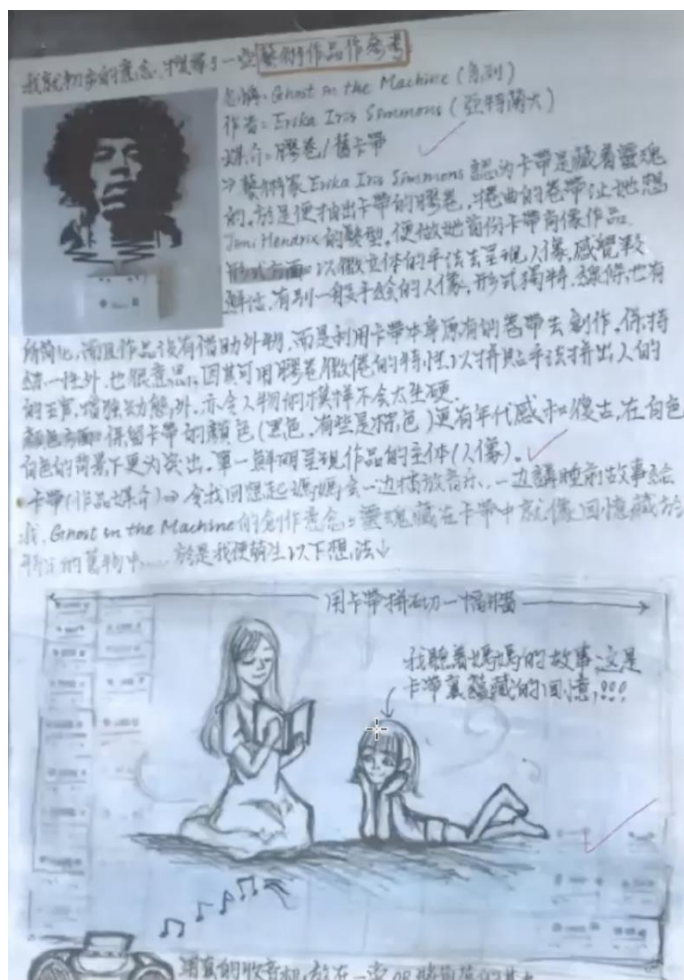 我就初步的意念，搜尋了一些藝術作品作參考
名稱：Ghost in the Machine (系列)
作者：Erika Iris Simmons (亞特蘭大)
媒介：膠卷/舊卡帶
→藝術家Erika Iris Simmons認為卡帶是藏着靈魂
的，於是便抽出卡帶的膠卷，捲曲的卷帶让她想
Jimi Hendrix的髮型，便做她首份卡帶肖像作品
形式方面：以微立体的手法去呈現人像，感覺較
鮮活，有別一般手繪的人像，形式獨特，線條也有
所简化，而且作品沒有借助外物，而是利用卡帶本身原有的卷帶去創作，保持
統一性外，也很意思。因其可用膠卷微捲的特性，以拼貼手法拼出人的
增強动態外，亦令人物的模样不会太生硬。
顏色方面：保留卡帶的顏色(黑色，有些是棕色)更有年代感和復古，在白色
白色的背景下更为突出，單一鮮明呈現作品的主体(人像)。
•卡帶(作品媒介)⇒令我回想起媽媽会一边播放音乐，一边講睡前故事給
我，Ghost in the Machine的創作意念：靈魂藏在卡帶中就像回憶藏於
的舊物中……於是我便萌生以下想法↓
用卡帶拼砌一幅牆
我聽着媽媽的故事，这是
卡帶裏蘊藏的回憶！！！
收音机，放在一旁OR